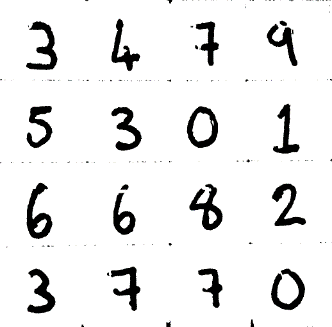 3 4 7 9
5 3 0 1
6 6 8 2
3 7 7 0